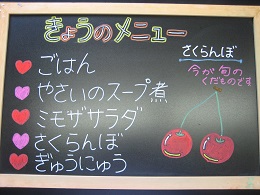 きょうのメニュー
ごはん
やさいのスープ煮
ミモザサラダ
さくらんぼ
ぎゅうにゅう
さくらんぼ
今が旬の
くだものです